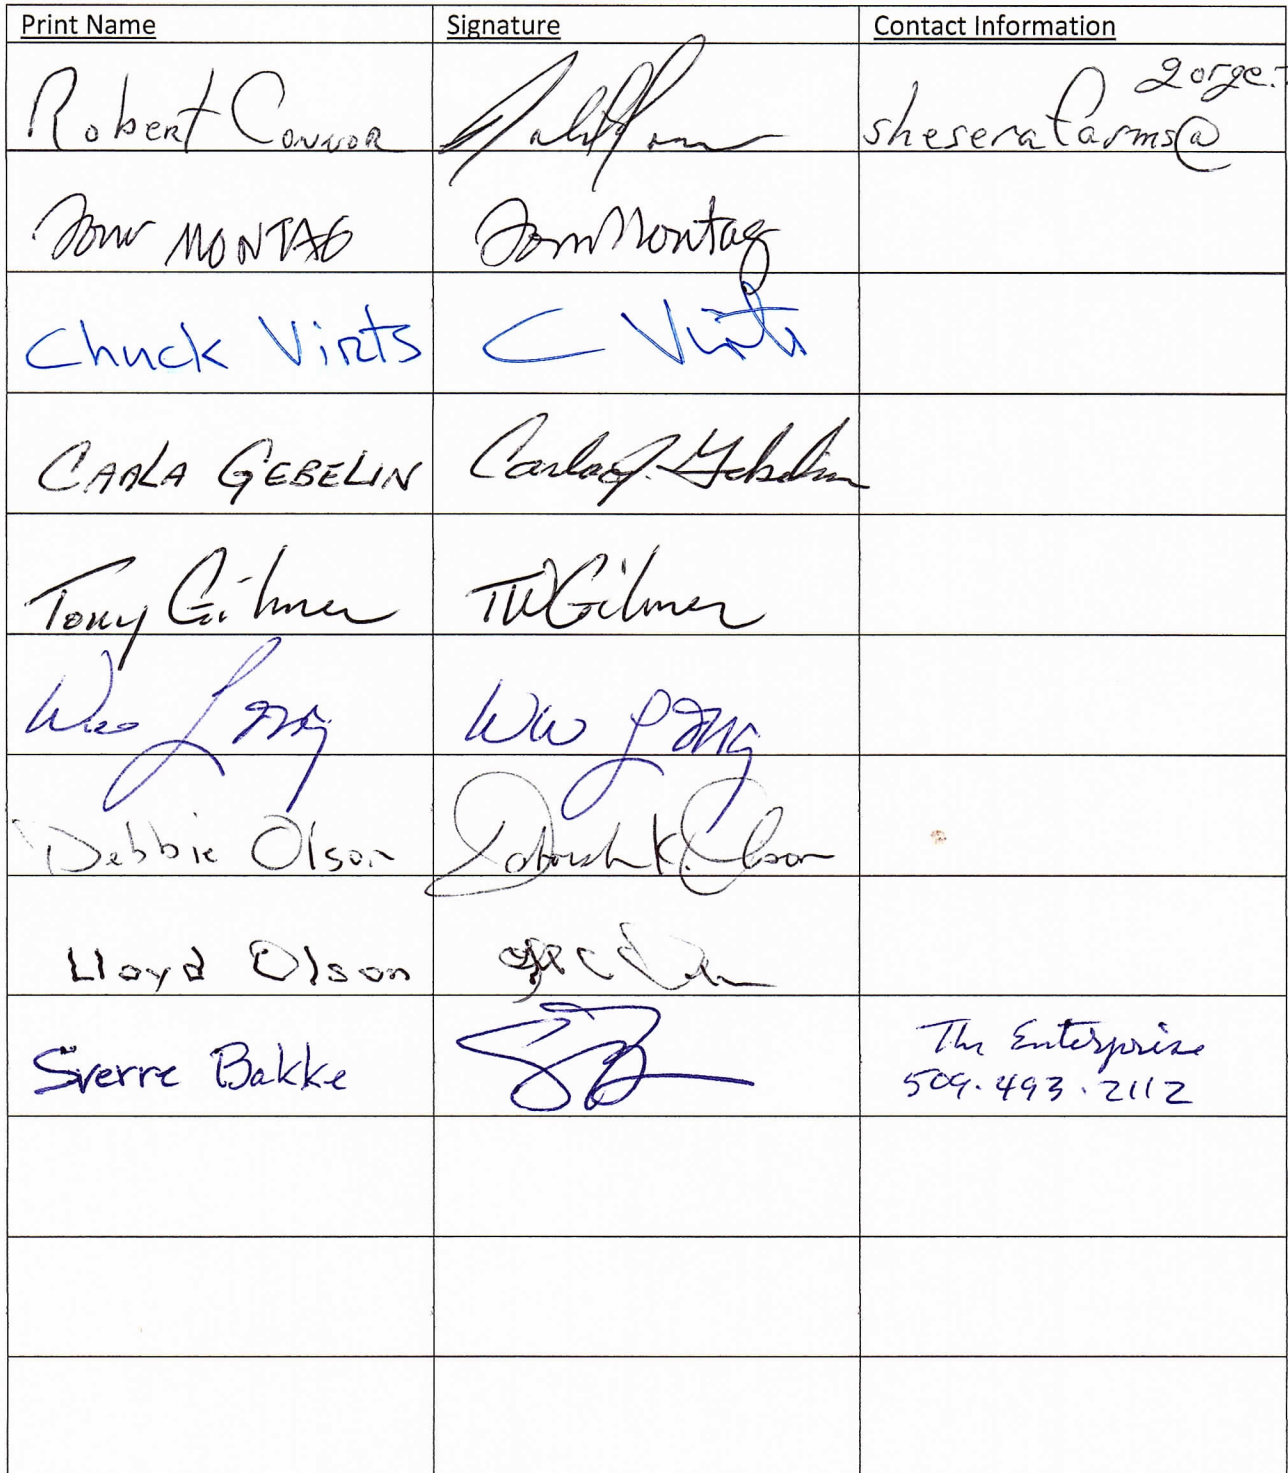 Print Name Signature Contact Information
Robert Connor gorge.
sheserafarms@
Tom MONTAG Tom Montag
Chuck Virts C Virts
CARLA GEBELIN Carla J. Gebelin
Tony Gilmer TW Gilmer
Wes Long WW Long
Debbie Olson Deborah K. Olson
Lloyd Olson
Sverre Bakke The Enterprise
509.493.2112